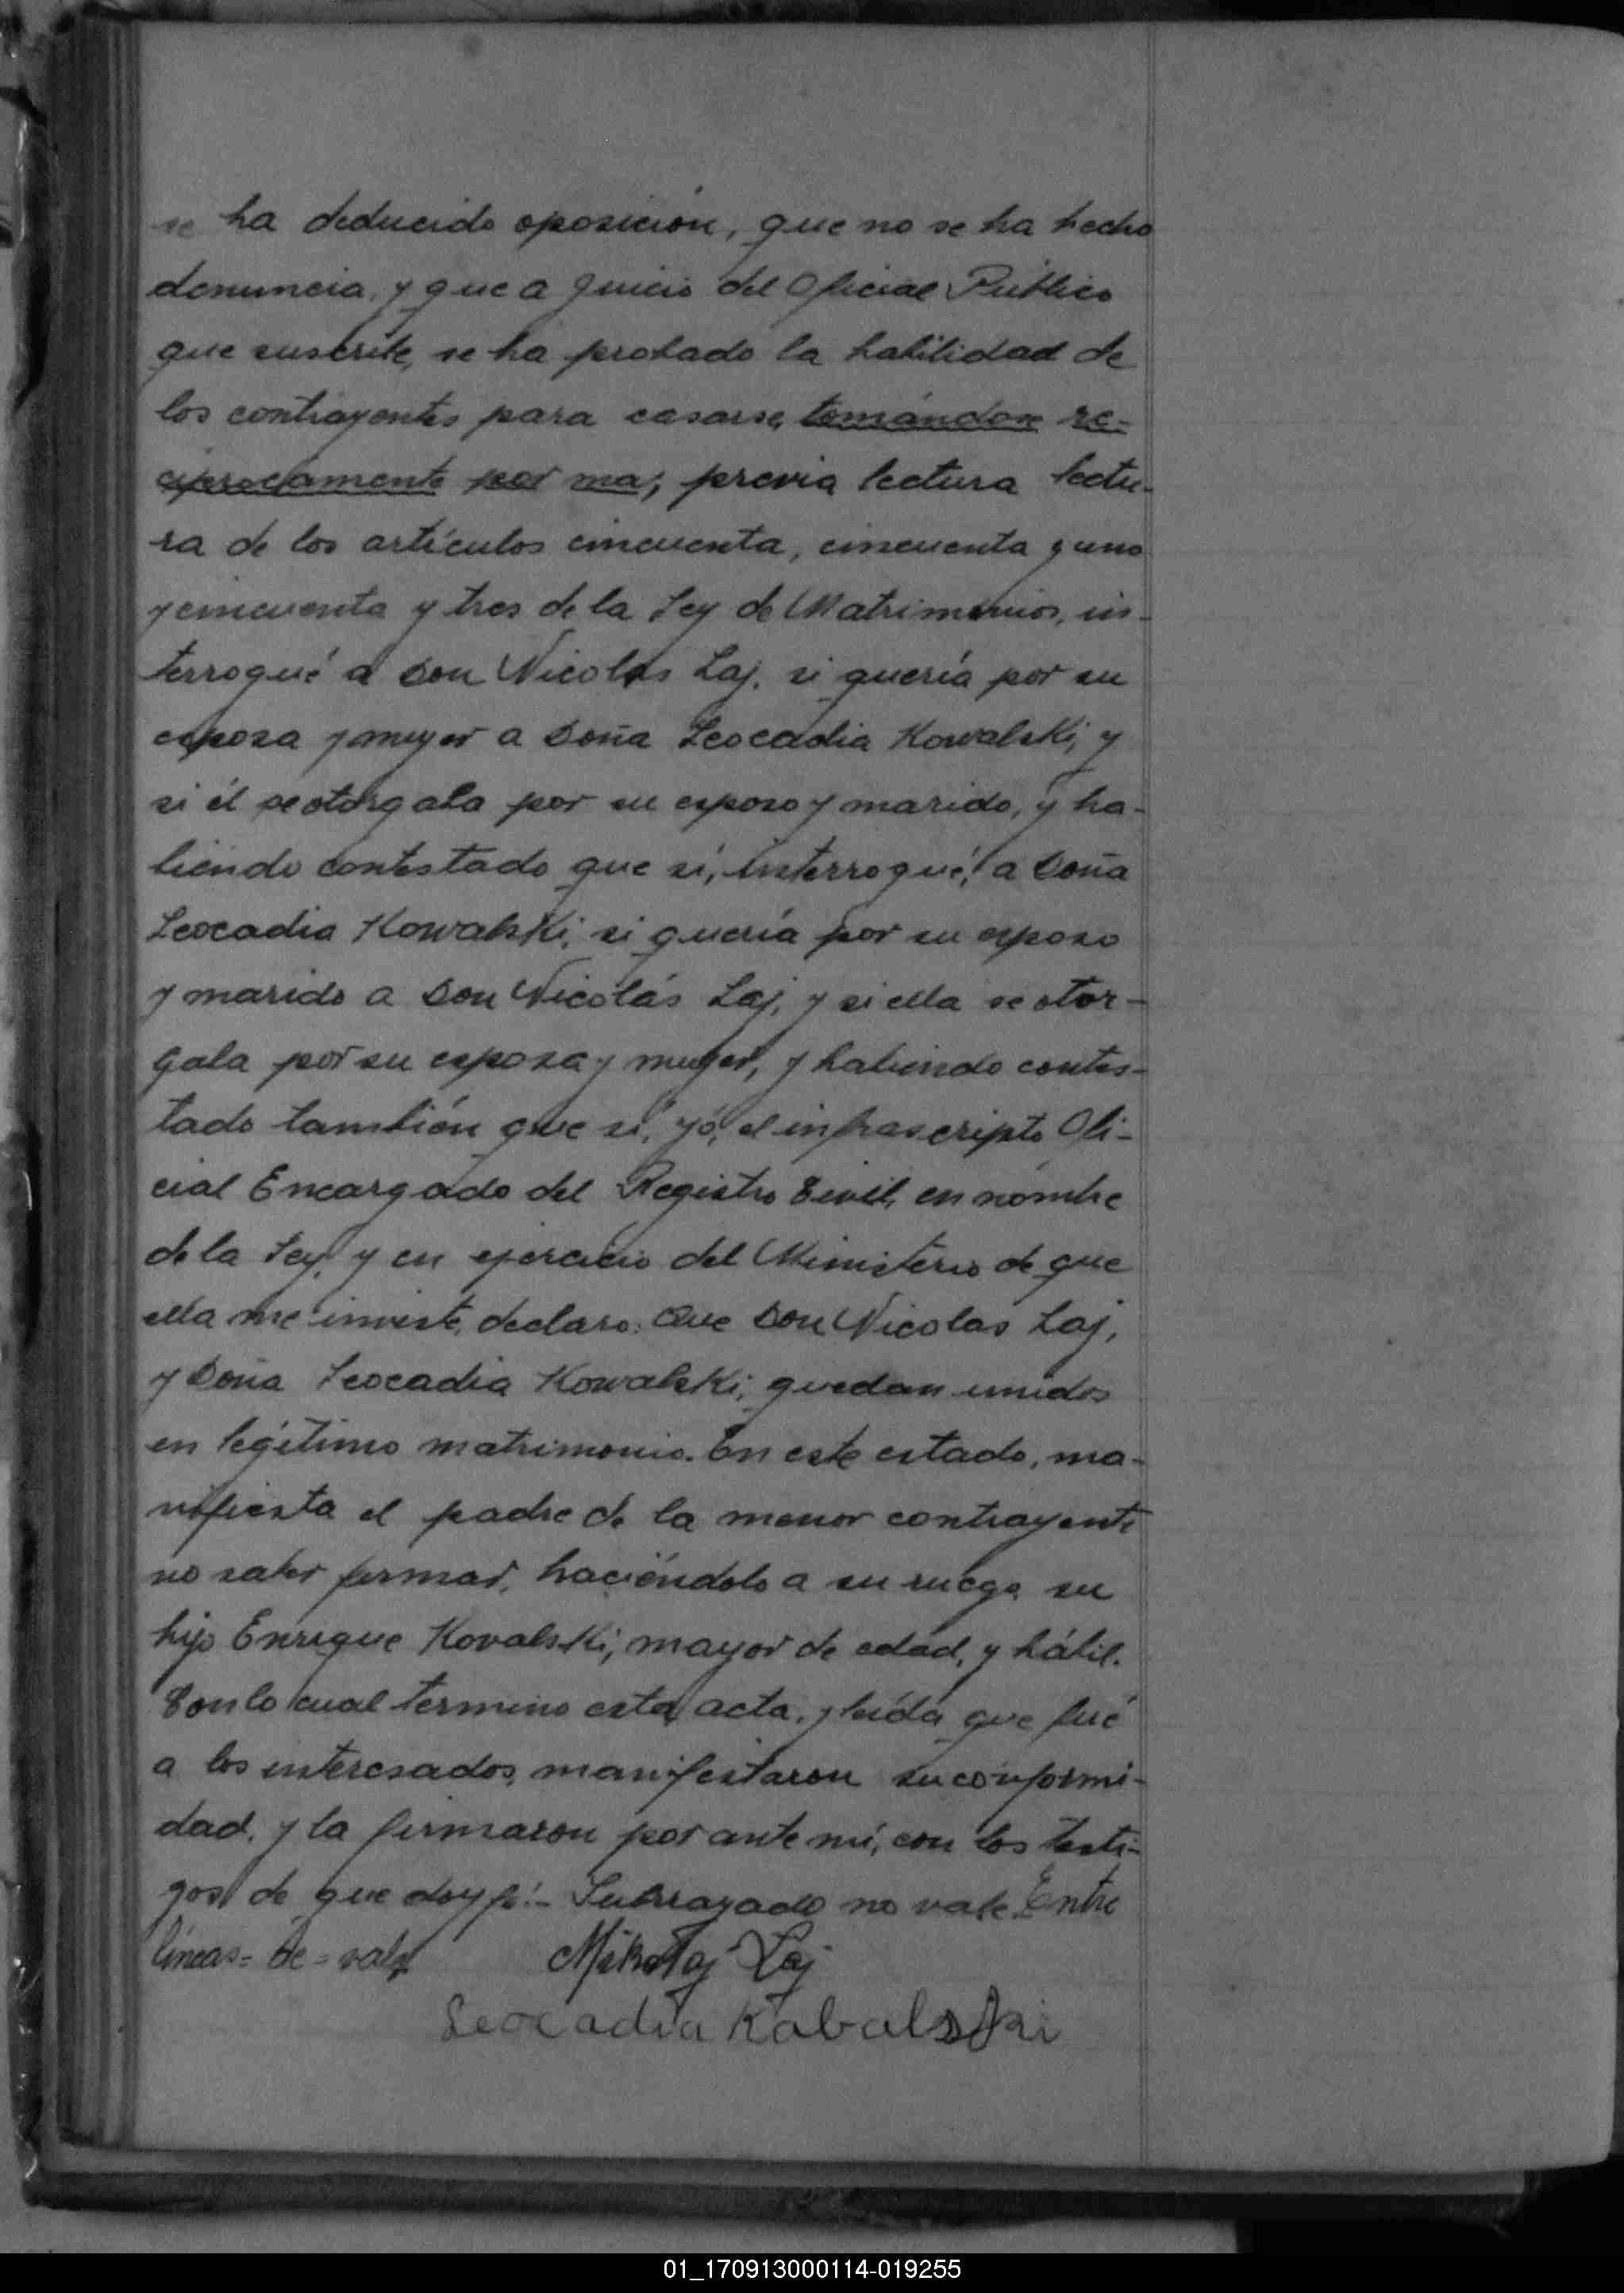 se ha deducido oposición, que no se ha hecho
denuncia, y que a juicio del Oficial Público
que suscribe, se ha probado la habilidad de
los contrayentes para casarse, tomándose re-
ciprocamente por ma; previa lectura lectu-
ra de los artículos cincuenta, cincuenta y uno
y cincuenta y tres de la Ley de Matrimonios, in-
terrogué a Don Nicolás Laj, si quería por su
esposa y muger a Doña Leocadia Kowalski, y
si él se otorgaba por su esposo y marido, y ha-
biendo contestado que sí, interrogué, a Doña
Leocadia Kowalski, si quería por su esposo
y marido a Don Nicolás Laj, y si ella se otor-
gaba por su esposa y muger, y habiendo contes-
tado también que sí, yó, el infrascripto Ofi-
cial Encargado del Registro Civil, en nómbre
de la Ley, y en ejercicio del Ministerio de que
ella me inviste, declaro: Que Don Nicolas Laj,
y Doña Leocadia Kowalski, quedan unidos
en legítimo matrimonio. En este estado, ma-
nifiesta el padre de la menor contrayente
no saber firmar, haciéndolo a su ruego su
hijo Enrique Kovalski, mayor de edad, y hábil.
Con lo cual termino esta acta, y leída que fué
a los interesados, manifestaron su conformi-
dad, y la firmaron por ante mí, con los testi-
gos de que doy fé.- Subrayado no vale Entre
líneas= de = vale
Mikołaj Łaj
Leocadia Kabalski
01_170913000114-019255